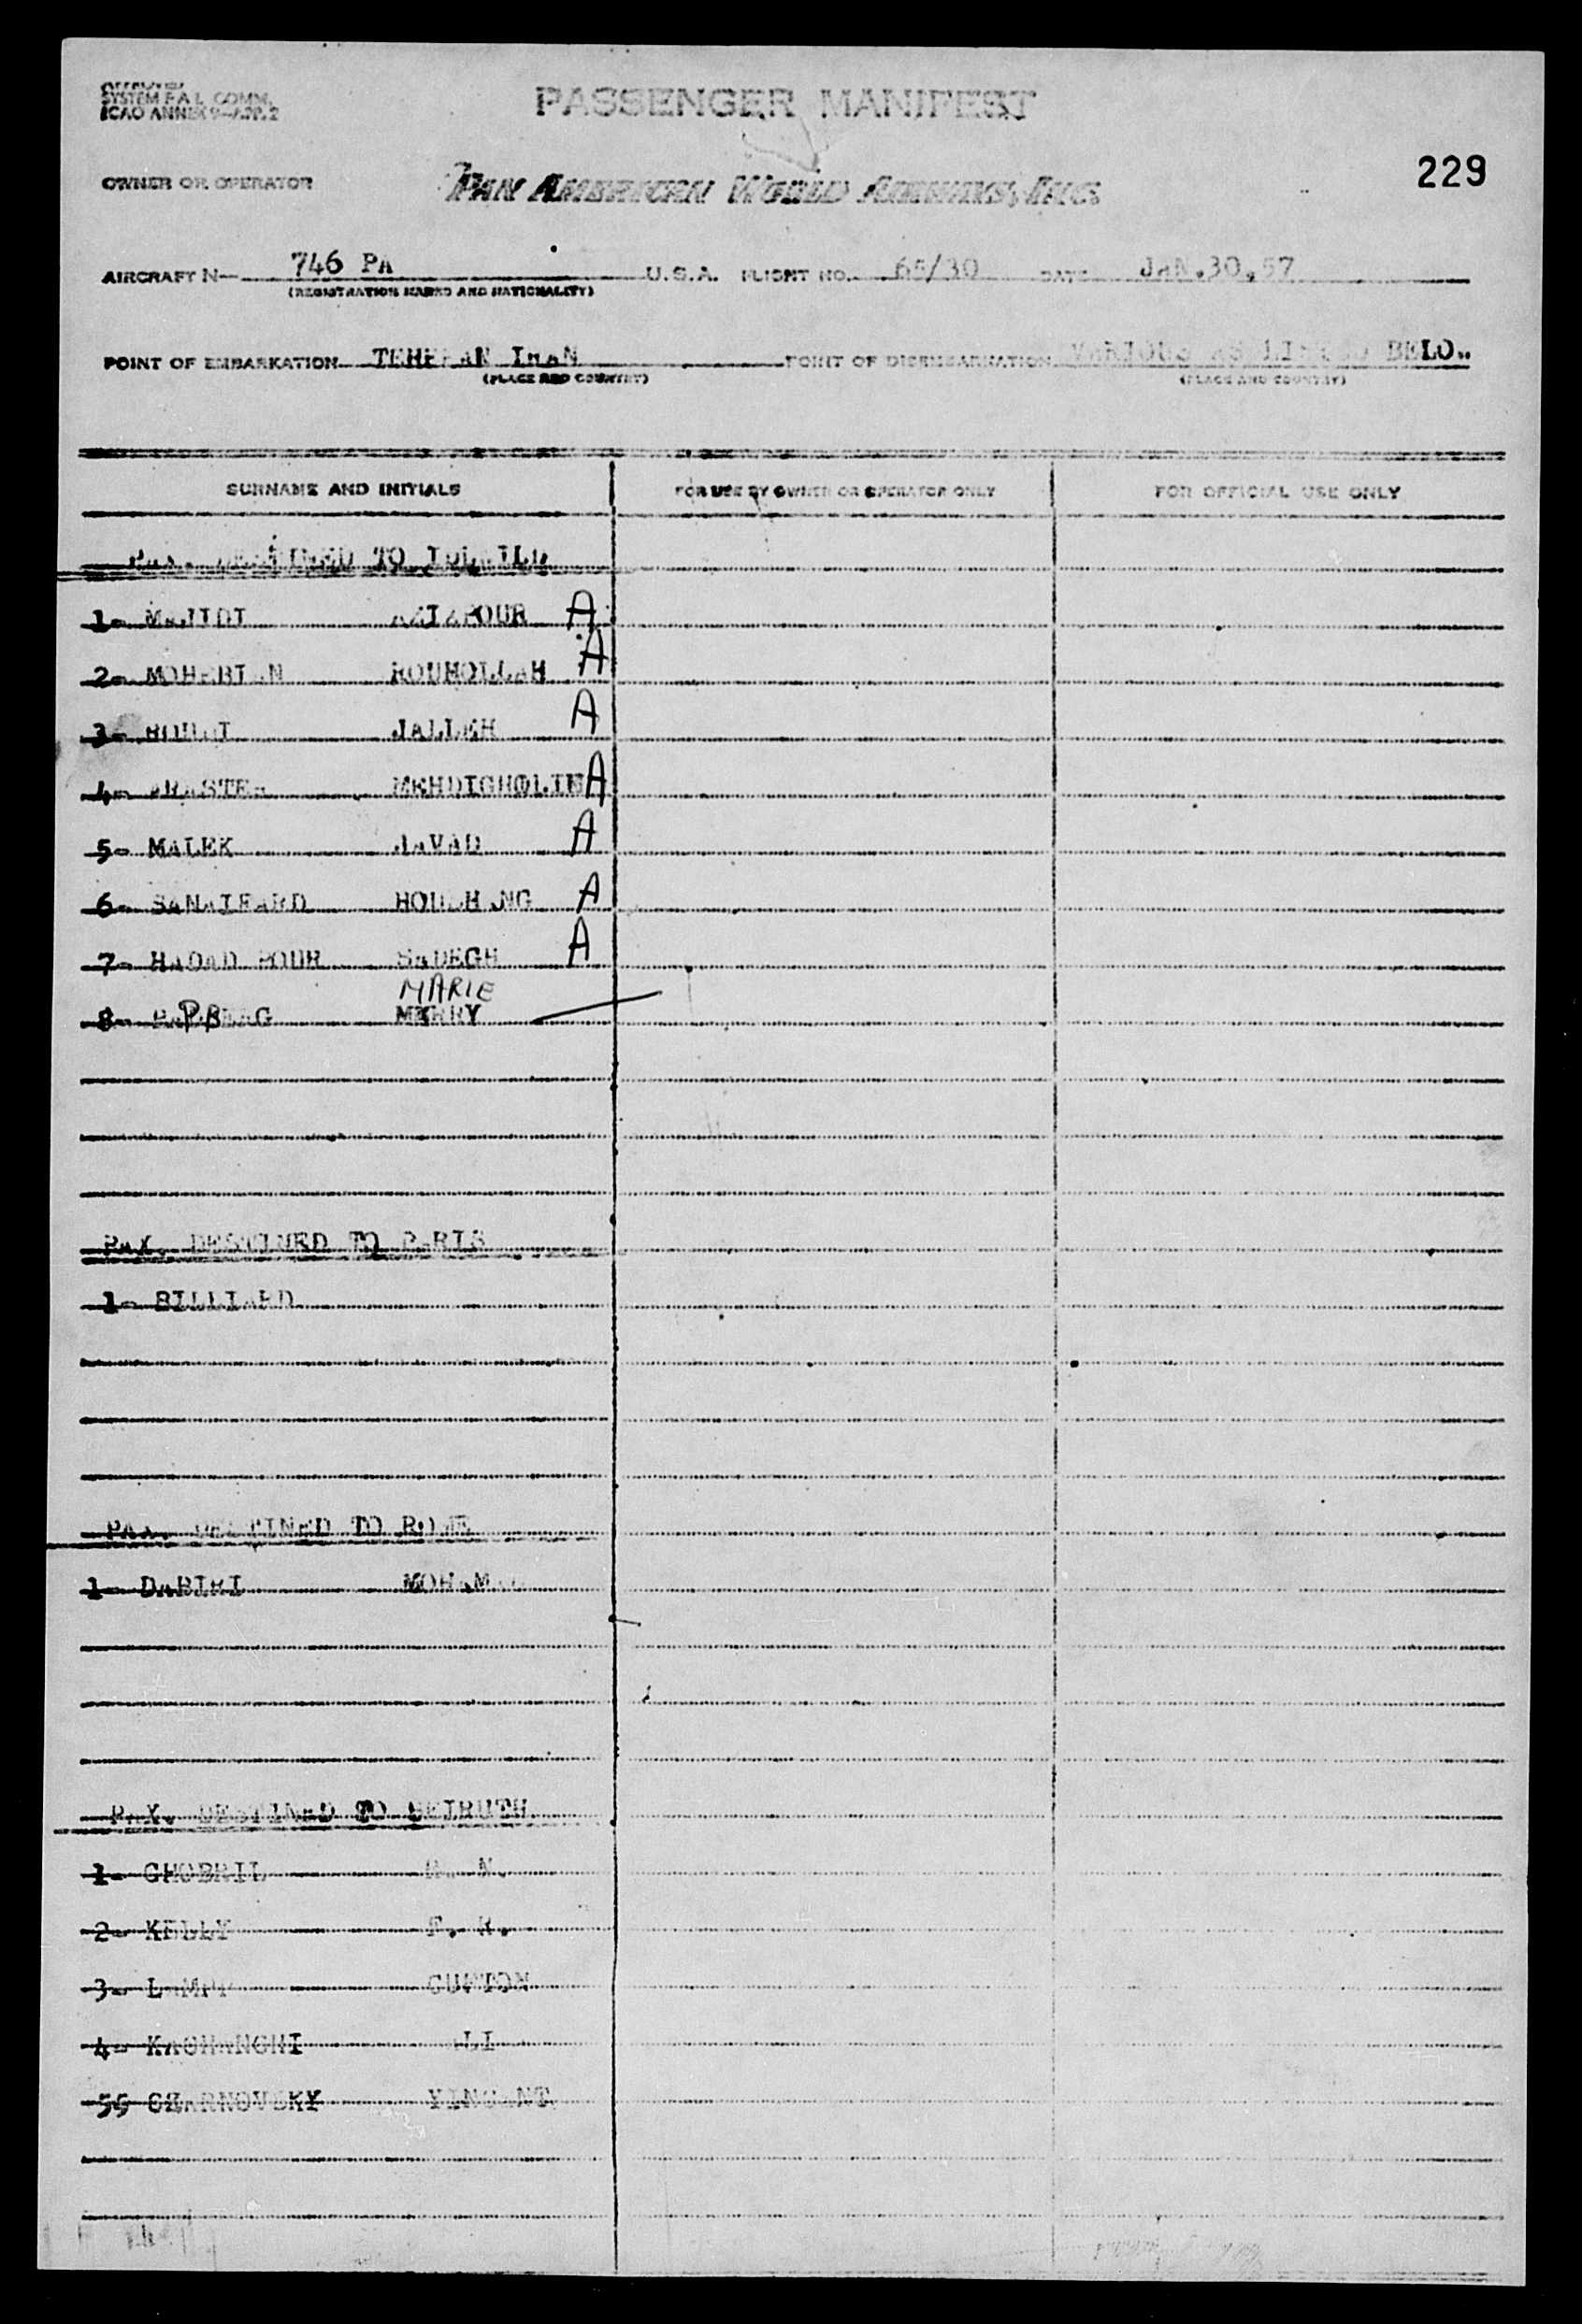 SYSTEM F.A.L. COMM.
ICAO ANNEX 9—APP. 2
PASSENGER MANIFEST
229
OWNER OR OPERATOR PAN AMERICAN WORLD AIRWAYS, INC.
AIRCRAFT N— 746 PA U.S.A. FLIGHT NO. 65/30 DATE JAN.30,57
(REGISTRATION MARKS AND NATIONALITY)
POINT OF EMBARKATION TEHERAN IRAN POINT OF DISEMBARKATION VARIOUS AS LISTED BELO..
(PLACE AND COUNTRY) (PLACE AND COUNTRY)
SURNAME AND INITIALS FOR USE BY OWNER OR OPERATOR ONLY FOR OFFICIAL USE ONLY
PAX. DESTINED TO IDLEWILD
1- MAJIDI AZIZPOUR A
2- MOHEBIAN ROUHOLLAH A
3- JALLEH A
4- ARASTEH MEHDIGHOLIH A
5- MALEK JAVAD A
6- SANAIFARD HOUSHANG A
7- HADAD POUR SADEGH A
MARIE
8- MERRY
PAX. DESTINED TO PARIS
1- BILLIARD
PAX. DESTINED TO ROME
1- DABIRI MOHAMAD
PAX. DESTINED TO BEIRUTH
1- GHOBRIL N.
2- KELLY F. R.
3-
4- KACHANCHI ALI
55 CZARNOVSKY VINCENT